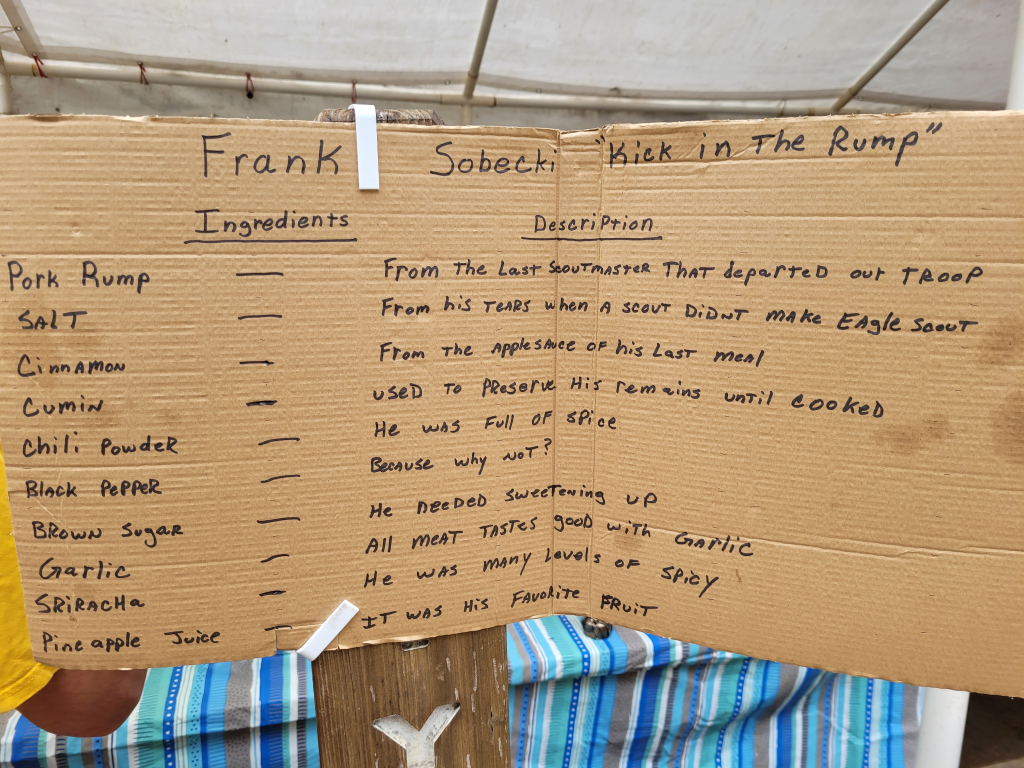 Frank Sobecki "Kick in The Rump"
Ingredients Description
Pork Rump — From The Last Scoutmaster That departed our Troop
Salt — From his Tears when A scout Didnt make Eagle Scout
Cinnamon — From The Applesauce of his Last meal
Cumin — used To Preserve His remains until cooked
Chili Powder — He was Full of spice
Black Pepper — Because why not?
Brown Sugar — He needed sweetening up
Garlic — All meat Tastes good with Garlic
Sriracha — He was many Levels of spicy
Pineapple Juice — It was His Favorite Fruit
Y